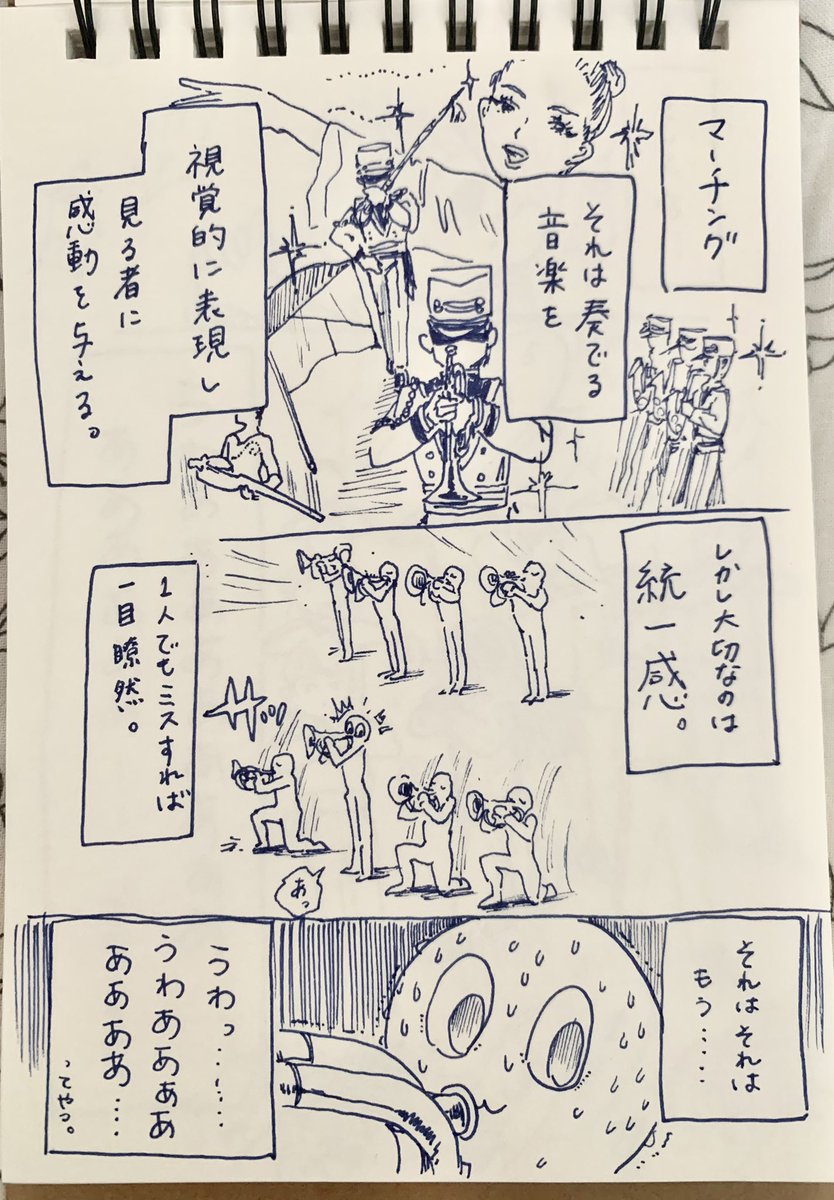 マーチング
それは奏でる
音楽を
視覚的に表現し
見る者に
感動を与える。
しかし大切なのは
統一感。
1人でもミスすれば
一目瞭然。
サッ
あっ
それはそれは
もう・・・・・
うわっ・・・・・
うわあああ
ああああ・・・・
ってやつ。